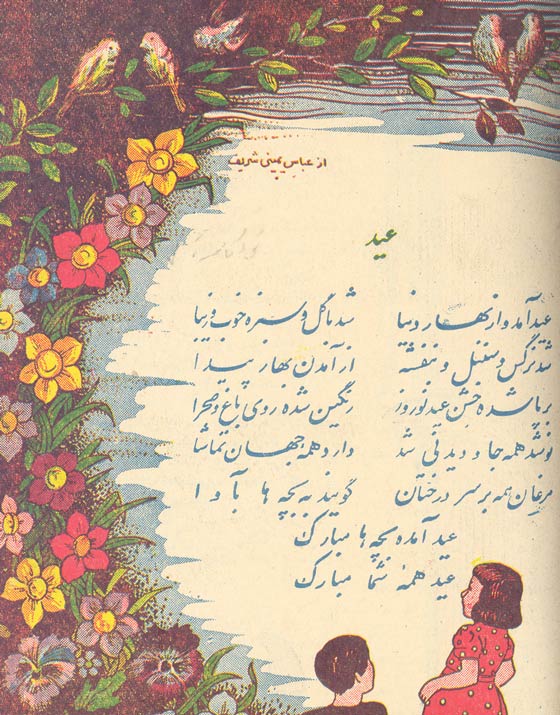 از عباس یمینی شریف
عید
عید آمد و از بهار دنیا شد با گل و سبزه خوب و زیبا
شد نرگس و سنبل و بنفشه از آمدن بهار پیدا
برپا شده جشن عید نوروز رنگین شده روی باغ و صحرا
نو شد همه جا و دیدنی شد دارد همه جهان تماشا
مرغان همه بر سر درختان گویند به بچه ها بآوا
عید آمده بچه ها مبارک
عید همه شما مبارک